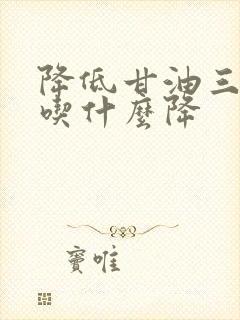 降低甘油三
喫什麼降
竇唯